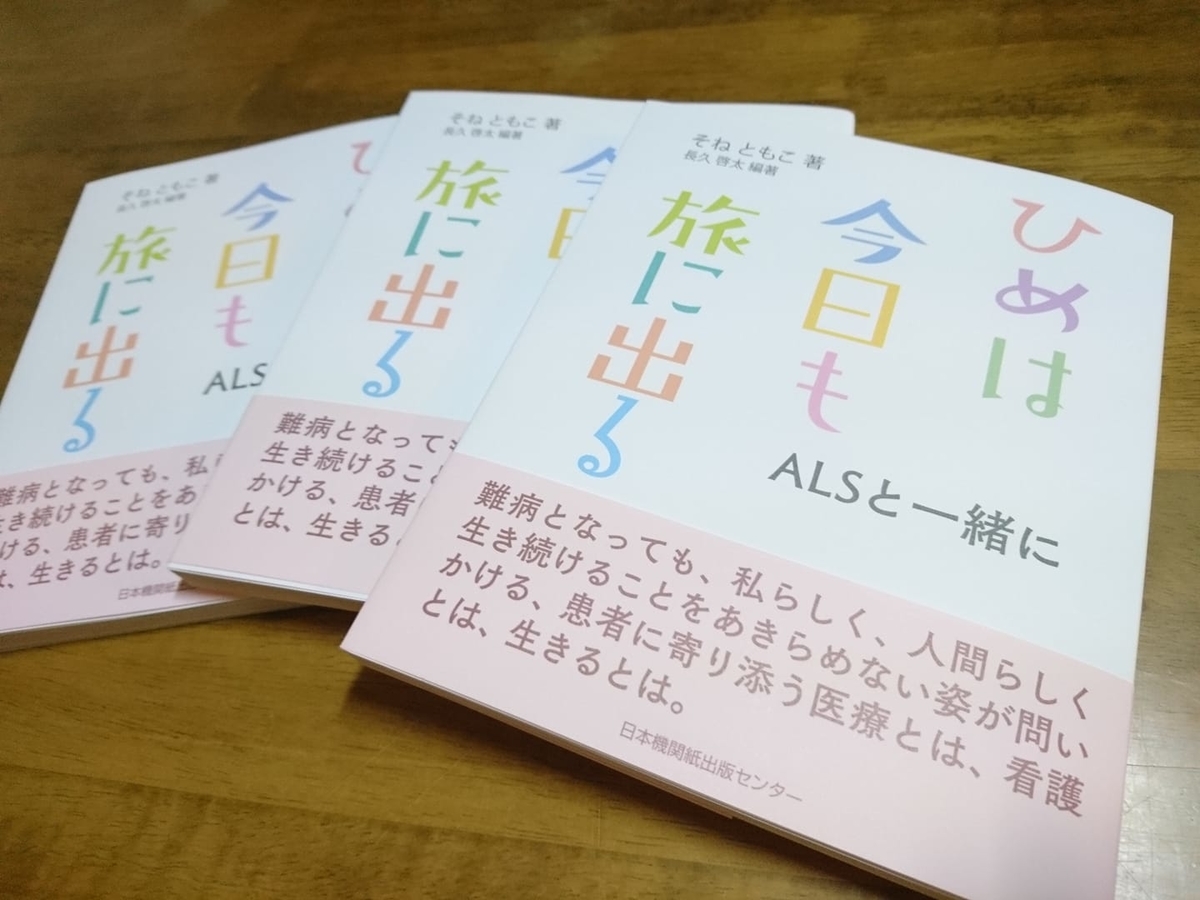 そね ともこ 著
長久 啓太 編著
ひめは
今日も
旅に出る
ALSと一緒に
難病となっても、私らしく、人間らしく
生き続けることをあきらめない姿が問い
かける、患者に寄り添う医療とは、看護
とは、生きるとは。
日本機関紙出版センター
そね ともこ 著
長久 啓太 編著
今日
旅に出る
難病となっても
生き続けるこ
かける、患者
とは、生きる
そね ともこ 著
長久 啓太 編著
ひ
今日も
旅に出る
ALS
難病となっても、私
生き続けることをあ
ける、患者に寄り
は、生きるとは。
日本機関紙